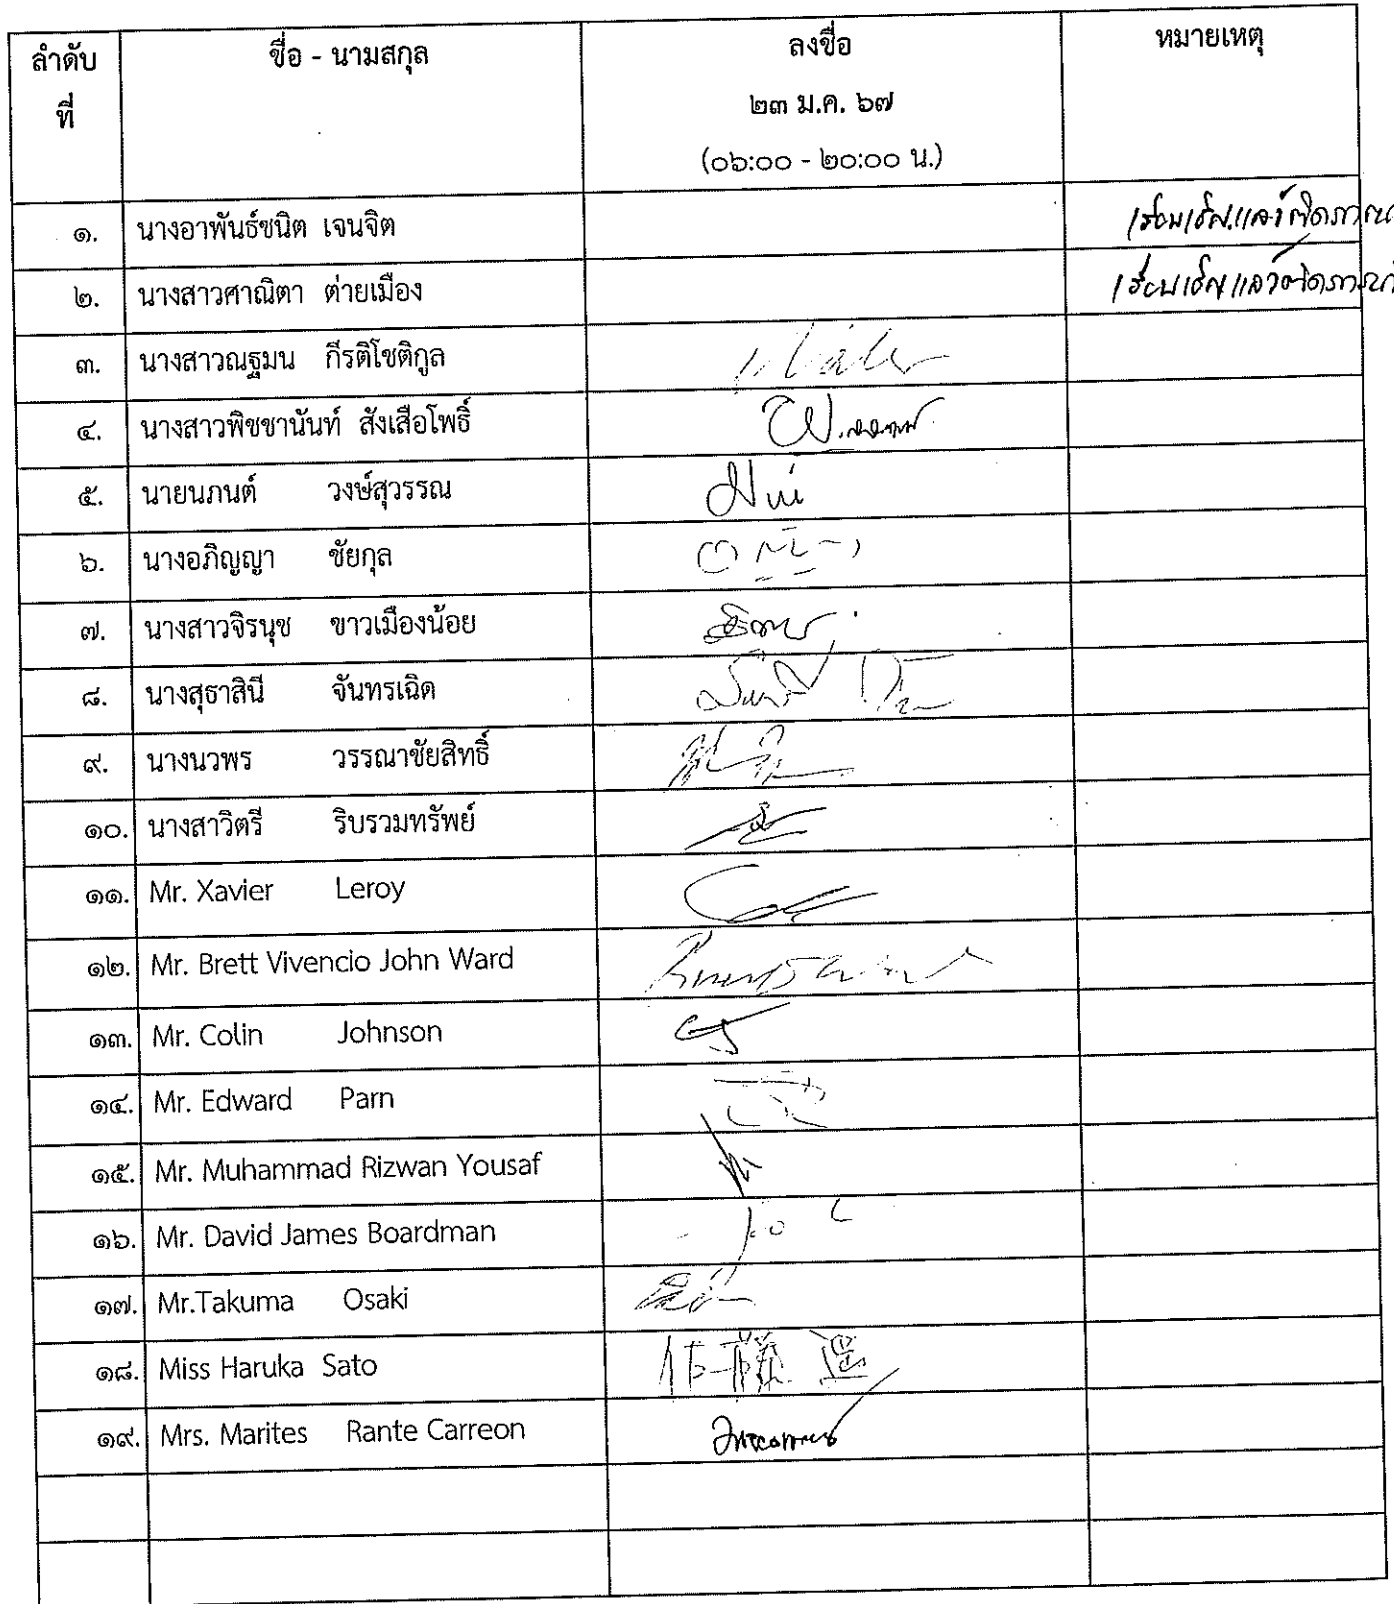 ลำดับ ชื่อ - นามสกุล ลงชื่อ หมายเหตุ
ที่ ๒๓ ม.ค. ๖๗
(๐๖:๐๐ - ๒๐:๐๐ น.)
๑. นางอาพันธ์ชนิต เจนจิต เรียนเชิญแล้วติดภารกิจ
๒. นางสาวศาณิตา ต่ายเมือง เรียนเชิญแล้วติดภารกิจ
๓. นางสาวณฐมน กีรติโชติกูล
๔. นางสาวพิชชานันท์ สังเสือโพธิ์
๕. นายนภนต์ วงษ์สุวรรณ
๖. นางอภิญญา ชัยกุล
๗. นางสาวจิรนุช ขาวเมืองน้อย
๘. นางสุธาสินี จันทรเฉิด
๙. นางนวพร วรรณาชัยสิทธิ์
๑๐. นางสาวิตรี ริบรวมทรัพย์
๑๑. Mr. Xavier Leroy
๑๒. Mr. Brett Vivencio John Ward
๑๓. Mr. Colin Johnson
๑๔. Mr. Edward Parn
๑๕. Mr. Muhammad Rizwan Yousaf
๑๖. Mr. David James Boardman
๑๗. Mr.Takuma Osaki
๑๘. Miss Haruka Sato 佐藤 遥
๑๙. Mrs. Marites Rante Carreon